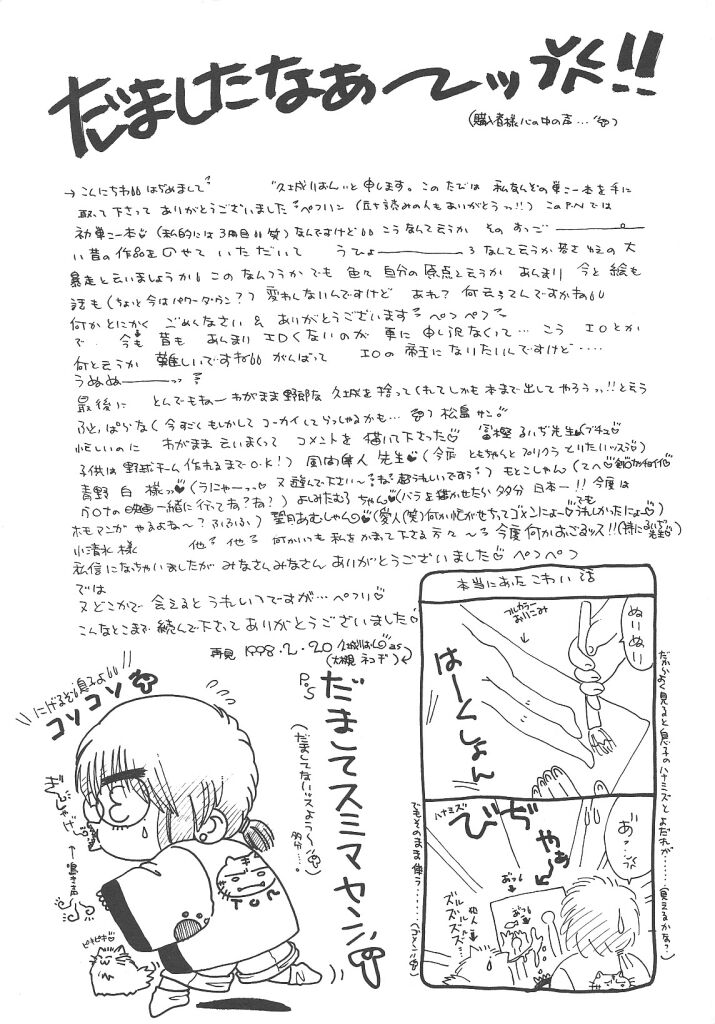 だましたなぁ〜ッ!!
(購入者様心の中の声…)
→こんにちわ はぢめまして 久城りおんと申します。このたびは 私なんぞの単こー本を手に
取って下さって ありがとうございました ペコリン (立ち読みの人もありがとうっ!!) このP.Nでは
初単こー本 (私的には3冊目 笑) なんですけど こうなんて云うか そのすっご
い昔の作品を のせて いただいて うひょ ろ なんて云うか 若さゆえの大
暴走と云いましょうか このなんつうか でも 色々 自分の原点と云うか あんまり 今と絵も
話も (ちょっと今はパワーダウン??) 変わんないんですけど あれ? 何云ってんですかね
何かとにかく ごめんなさい & ありがとうございます ペコペコ
で 今も昔も あんまり エロくないのが 更に 申し訳なくって… こう エロとか
何と云うか 難しいですね がんばって エロの帝王になりたいんですけど……
うぬぬーーッ
最後に とんでもねー わがまま野郎な 久城を捨ってくれてしかも本まで出してやろうっ!!と云う
ふとっぱらな 今すごくもしかして コーカイしてらっしゃるかも… 松島サン
忙しいのに わがまま云いまくって コメントを描いて下さった 富樫るいぢ先生 (ブチュ
子供は野球チーム作れるまでO.K!) 風間隼人先生 (今度 ともちゃんと プリクラ とりたいッスぅ)
青野 白 様 (うにゃーっ 又遊んで下さい ね 超うれしいですぅ) もとこしゃん (てへ
GOTの映画一緒に行ってね?ね?) よしみたむろちゃん (バラを描かせたら 多分 日本一!! 今度は
ホモマンガ やるよね〜? ふふふ) 望月あむしゃん (愛人(笑) 何か忙がせちってゴメンにょー でも うれしかったにょー)
小清水様 他 他 何かいつも私を かまって下さる方々〜 今度何かおごるッス!! (特にるいぢ先生)
私信になっちゃいましたが みなさんみなさん ありがとうございました ペコペコ
では
又どこかで 会えると うれしいっですが… ペコリ
こんなとこまで 読んで下さって ありがとうございました
再見 1998.2.20 久城りおん as
(大槻 ネコヂ)
P.S
だましてスミマセン
(だましてないッスよう〜 多分…。)
にげるぞ息子よ
コソコソ
←鳴き声
ピキピキ
本当にあった こわい話
フルカラー おりこみ
ぬりぬり
はーくしょん
だからよく見ると息子のハナミズとよだれが……(見えるかな?)
ハナミズ
びぢゃぁー
あ?…
おっ
犯人
ズルズルズルズル…
でもそのまま使う……(ゴメン)